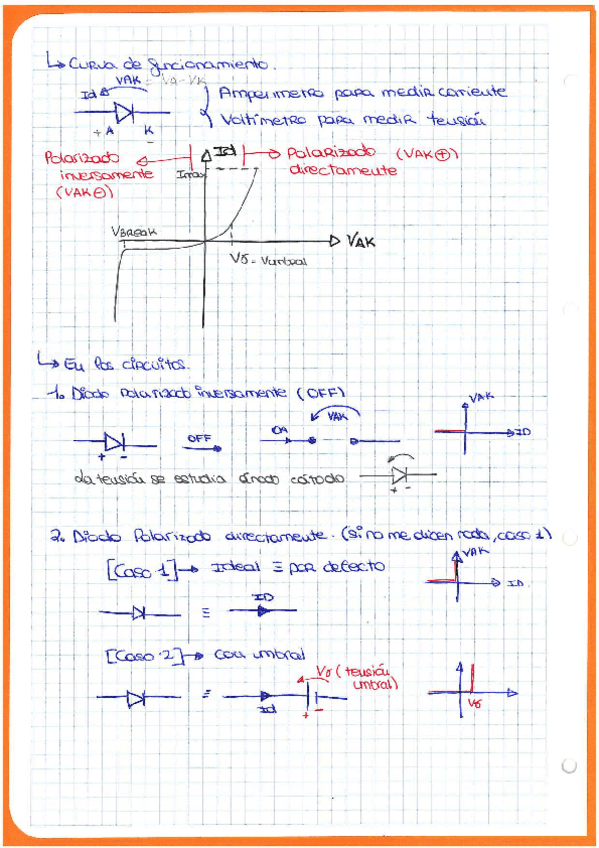 ↳ Curva de funcionamiento.
VAK = VA - VK
Id
+ A K -
Amperímetro para medir corriente
Voltímetro para medir tensión
Polarizado inversamente (VAK⊖)
Id
Polarizado directamente (VAK⊕)
Imax
VBREAK
VAK
Vγ = Vumbral
↳ En los circuitos.
1. Diodo Polarizado inversamente (OFF)
+ -
OFF
0A
VAK
VAK
ID
La tensión se estudia ánodo cátodo
+ -
2. Diodo Polarizado directamente. (si no me dicen nada, caso 1)
[Caso 1] → Ideal ≡ por defecto
VAK
ID
≡
ID
[Caso 2] → con umbral
Vγ (tensión umbral)
≡
Id
+ -
Vγ